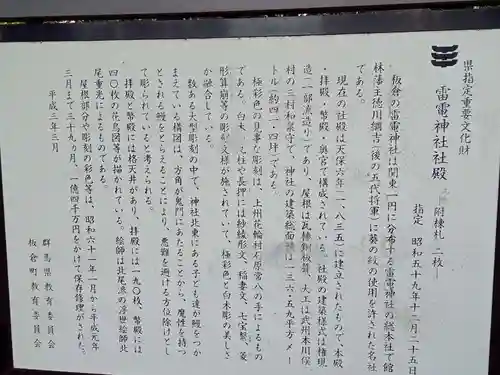 県指定重要文化財
雷電神社社殿
附棟札二枚
指定 昭和五十九年十二月二十五日
板倉の雷電神社は関東一円に分布する雷電神社の総本社で館
林藩主徳川綱吉(後の五代将軍)に葵の紋の使用を許された名社
である。
現在の社殿は天保六年(一八三五)に建立されたもので、本殿
・拝殿・幣殿・奥宮で構成されている。社殿の建築様式は権現
造(一部入造り)であり、屋根は瓦棒銅板葺、大工は武州本川俣
村の三村和泉守で、神社の建築総面積は一三六・五九平方メー
トル(約四一・四坪)である。
極彩色の見事な彫刻は、上州花輪村石原常八の手によるもの
である。白木の丸柱や長押には紗綾形文、稲妻文、七宝繋、菱
形算崩等の彫刻文様が施されていて、極彩色と白木彫の美しさ
が融合している。
数ある大型彫刻の中で、神社北東にある子ども達が鰻をつか
まえている構図は、方角が鬼門にあたることから、魔性を持つ
とされる鰻をとらえることにより、悪難を避ける方位除けとし
て彫られていると考えられる。
拝殿と幣殿には格天井があり、拝殿には一九〇枚、幣殿には
四〇枚の花鳥図等が描かれている。絵師は北尾派の浮世絵師北
尾重光によるものである。
屋根部分や彫刻の彩色等は、昭和六十一年一月から平成元年
三月まで三十九ヵ月、一億四千万円をかけて保存修理がされた。
平成三年三月
群馬県教育委員会
板倉町教育委員会